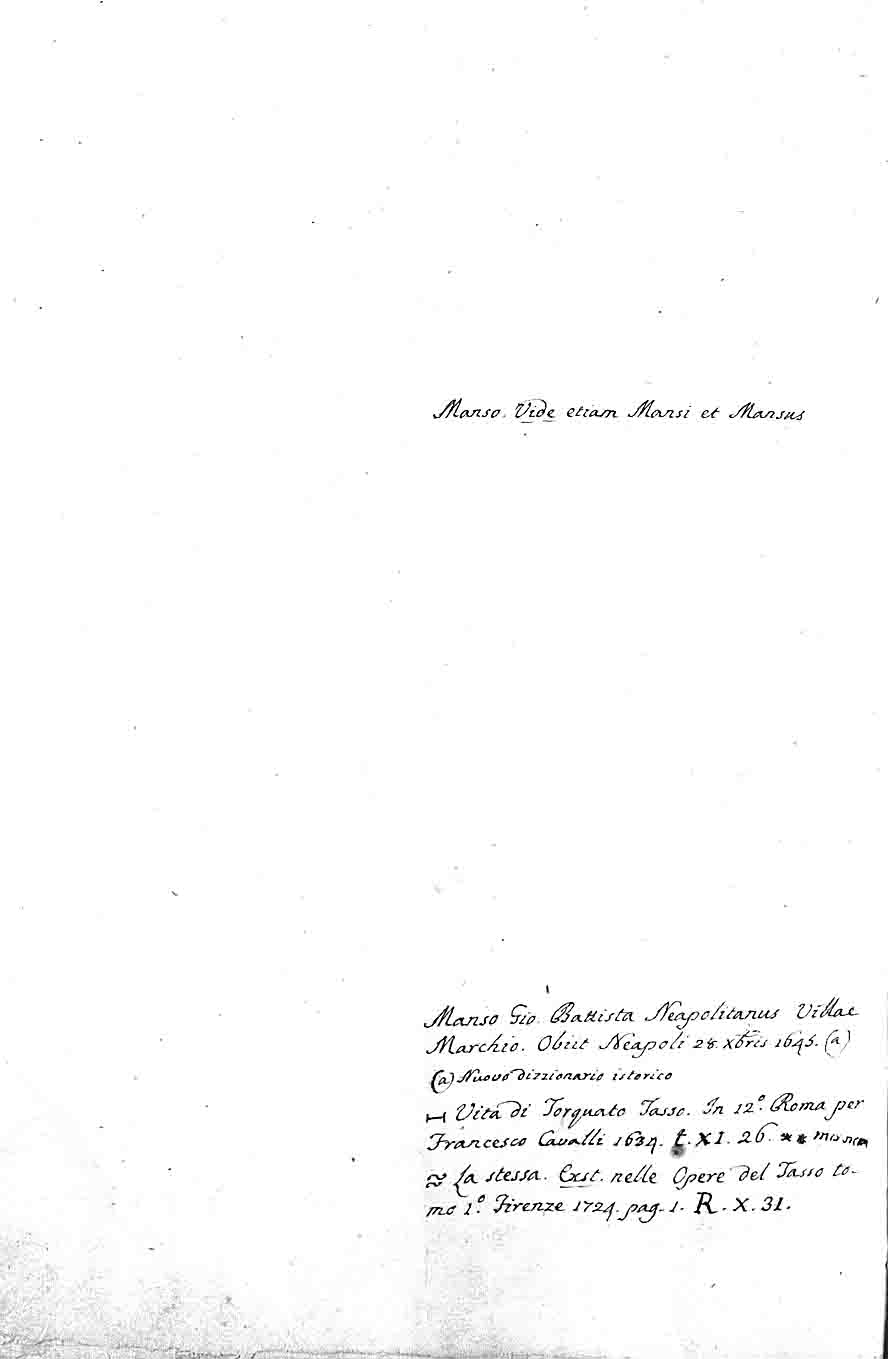 Manso. Vide etiam Mansi et Mansus
Manso Gio. Battista Neapolitanus Villae
Marchio. Obiit Neapoli 28. Xbris 1645. (a)
(a) Nuovo dizzionario istorico
Vita di Torquato Tasso. In 12.º Roma per
Francesco Cavalli 1634. t. XI. 26. ** manca
≈ La stessa. Exst. nelle Opere del Tasso to-
mo 1.º Firenze 1724. pag. 1. R. X. 31.